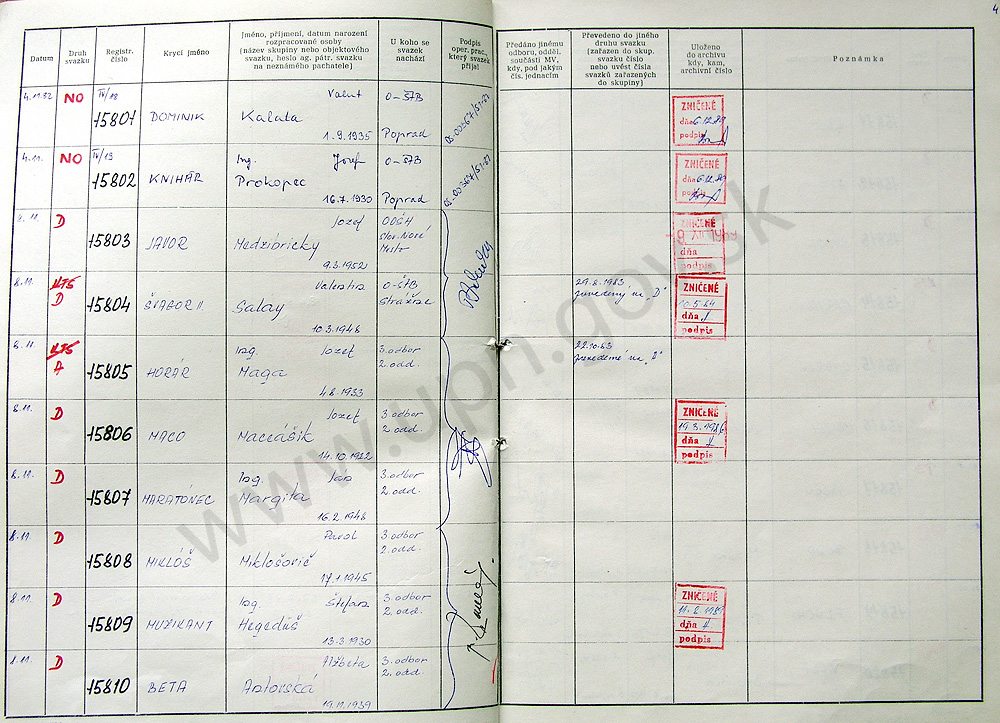 4
Datum
Druh svazku
Registr. číslo
Krycí jméno
Jméno, příjmení, datum narození rozpracované osoby (název skupiny nebo objektového svazku, heslo ag. pátr. svazku na neznámého pachatele)
U koho se svazek nachází
Podpis oper. prac., který svazek přijal
Předáno jinému odboru, odděl. součásti MV, kdy, pod jakým čís. jednacím
Převedeno do jiného druhu svazku (zařazen do skup. svazku číslo nebo uvést čísla svazků zařazených do skupiny)
Uloženo do archivu kdy, kam, archivní číslo
Poznámka
4.11.82 NO IV/18 15801 DOMINIK Kaluta Valent 1.9.1935 O-ŠTB Poprad
ZNIČENÉ
dňa 6.12.89
podpis
4.11. NO IV/19 15802 KNIHÁR Ing. Jozef Prokopec 16.7.1930 O-ŠTB Poprad
ZNIČENÉ
dňa 6.12.89
podpis
8.11. D 15803 JAVOR Jozef Medzibrický 9.3.1952 Nové Mesto
ZNIČENÉ
dňa
podpis
8.11. D 15804 Valentín Salay 10.3.1948 O-ŠTB
29.8.1983 prevedený na "D"
ZNIČENÉ
10.5.84
dňa
podpis
8.11. A 15805 HORÁR Ing. Jozef Maga 4.8.1933 3. odbor 2. odd.
22.10.83 prevedené na
8.11. D 15806 MACO Jozef Maceášik 14.10.1922 3. odbor 2. odd.
ZNIČENÉ
19.3.1986
dňa
podpis
8.11. D 15807 MARATÓNEC Ing. Ján Margita 16.2.1948 3. odbor 2. odd.
8.11. D 15808 MIKLÓŠ Pavol Miklošovič 17.1.1945 3. odbor 2. odd.
8.11. D 15809 MUZIKANT Ing. Štefan Hegedüš 13.3.1930 3. odbor 2. odd.
ZNIČENÉ
dňa
podpis
8.11. D 15810 BETA Alžbeta 19.11.1939 3. odbor 2. odd.
www.upn.gov.sk